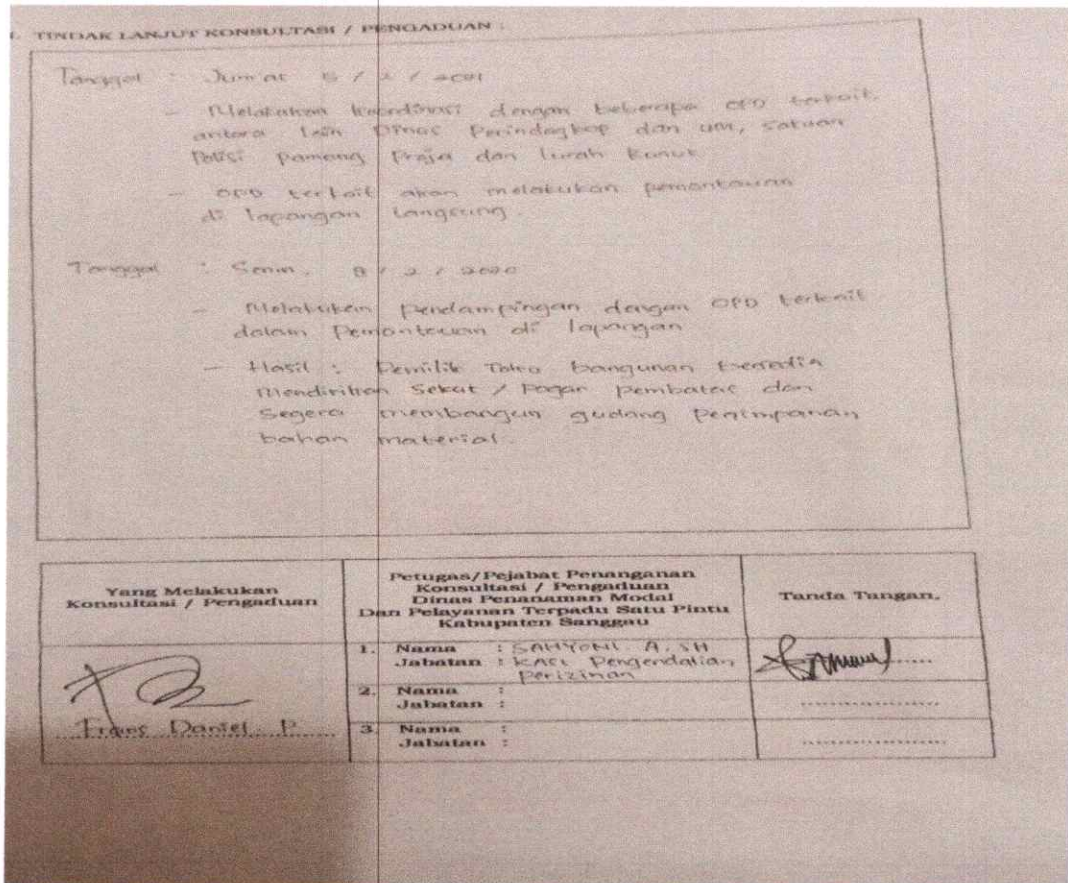 . TINDAK LANJUT KONSULTASI / PENGADUAN :
Tanggal : Jum'at 5 / 2 / 2021
- Melakukan koordinasi dengan beberapa OPD terkait,
antara lain Dinas Perindagkop dan UM, Satuan
Polisi Pamong Praja dan lurah
- OPD terkait akan melakukan pemantauan
di lapangan langsung.
Tanggal : Senin, 8 / 2 / 2020
- Melakukan pendampingan dengan OPD terkait
dalam Pemantauan di lapangan
- Hasil : Pemilik Toko bangunan bersedia
Mendirikan Sekat / Pagar pembatas dan
Segera membangun gudang Penyimpanan
bahan material.
Yang Melakukan
Konsultasi / Pengaduan
Petugas/Pejabat Penanganan
Konsultasi / Pengaduan
Dinas Penanaman Modal
Dan Pelayanan Terpadu Satu Pintu
Kabupaten Sanggau
Tanda Tangan,
1. Nama : SAHYONI. A. SH
Jabatan : KASI Pengendalian
Perizinan
2. Nama :
Jabatan :
3. Nama :
Jabatan :
Daniel. P